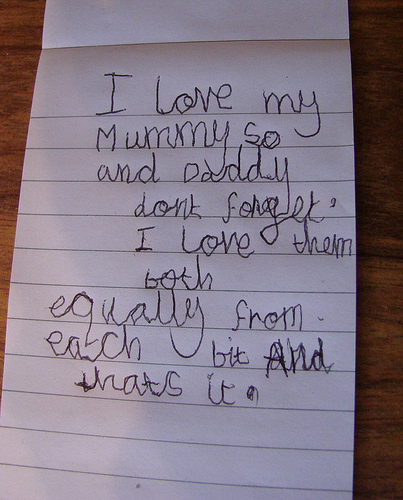 I love my
Mummy so
and Daddy
dont forget'
I love them
both
equally from.
eatch bit And
thats it.